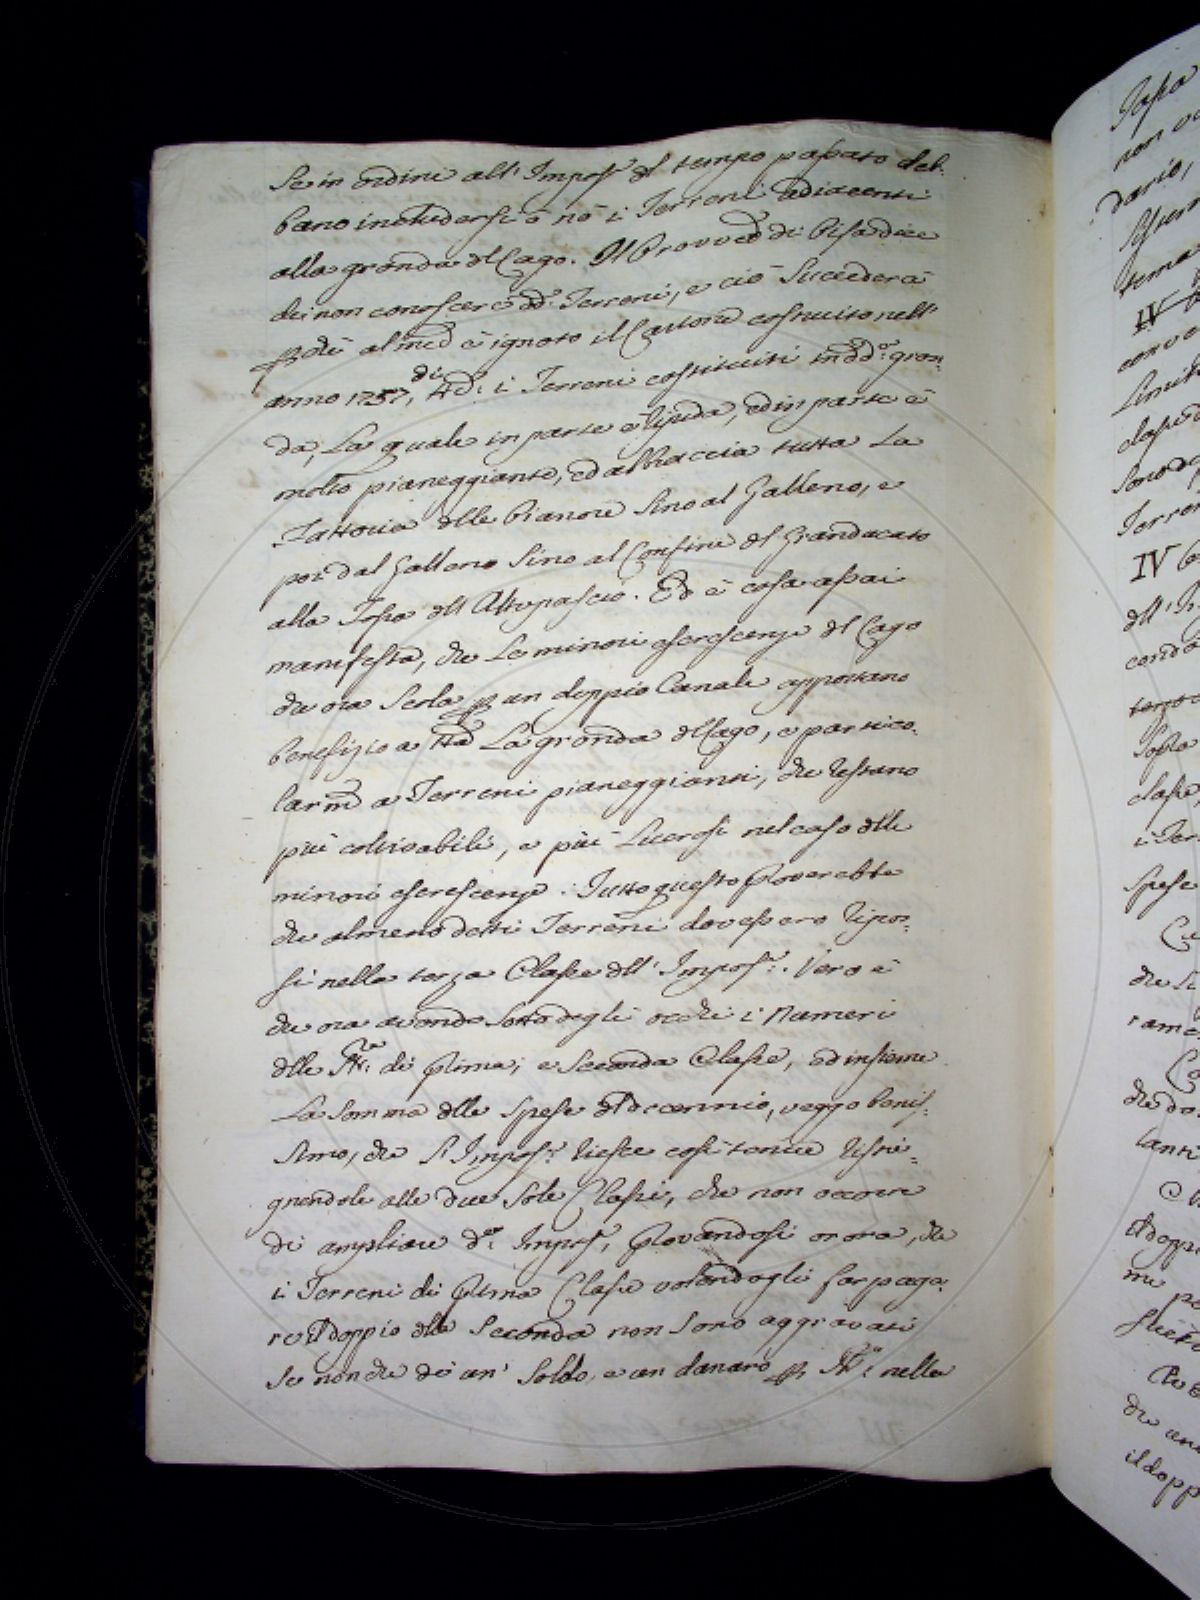 Se in ordine all' Impos.ᵉ del tempo passato deb-
bano includersi ò nò i Terreni adiacenti
alla gronda del Lago. Il Provved.ʳᵉ di Pisa dice
di non conoscere dd.ⁱ Terreni, e ciò succederà
perché al med.ᵒ è ignoto il Cartone costruito nell'
anno 1757, di tt.ⁱ i Terreni costituiti in dd.ᵃ gron-
da, La quale in parte è ripida, ed in parte è
molto pianeggiante, ed abbraccia tutta La
Fattoria delle Pianore Sino al Galleno, e
poi dal Galleno Sino al Confine del Granducato
alla Fossa dell'Altopascio. Ed è cosa assai
manifesta, che Le minori escrescenze del Lago
che ora Scola per un doppio Canale apportano
benefizio a tt.ᵃ La gronda del Lago, e partico-
larm.ᵉ a Terreni pianeggianti, che restano
più coltivabili, e più Lucrosi nel caso delle
minori escrescenze. Tutto questo proverebbe
che almeno detti Terreni dovessero ripor-
si nella terza Classe dell'Impos.ᵉ. Vero è
che ora avendo Sotto degli occhi i Numeri
delle di Prima, e Seconda Classe, ed insieme
La Somma delle Spese del decennio, veggo benis-
simo, che l'Impos.ᵉ riesce così tenue ristri-
gnendole alle due Sole Classi, che non occorre
di ampliare d.ᵃ Impos.ᵉ, provandosi or ora, che
i Terreni di Prima Classe volendogli far paga-
re il doppio della Seconda non Sono aggravati
Se non che di un' Soldo, e un danaro per nella
Fossa
non
dario,
tema
IV
IV
Sono
dell'
Spese
Classe,
i Ter
che
il dopp